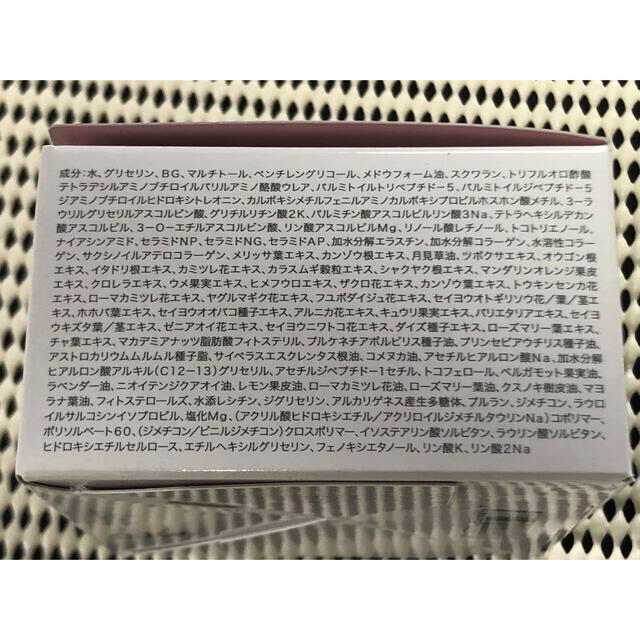 成分：水、グリセリン、BG、マルチトール、ペンチレングリコール、メドウフォーム油、スクワラン、トリフルオロ酢酸
テトラデシルアミノブチロイルバリルアミノ酪酸ウレア、パルミトイルトリペプチド-5、パルミトイルジペプチド-5
ジアミノブチロイルヒドロキシトレオニン、カルボキシメチルフェニルアミノカルボキシプロピルホスホン酸メチル、3-ラ
ウリルグリセリルアスコルビン酸、グリチルリチン酸2K、パルミチン酸アスコルビルリン酸3Na、テトラヘキシルデカン
酸アスコルビル、3-O-エチルアスコルビン酸、リン酸アスコルビルMg、リノール酸レチノール、トコトリエノール、
ナイアシンアミド、セラミドNP、セラミドNG、セラミドAP、加水分解エラスチン、加水分解コラーゲン、水溶性コラー
ゲン、サクシノイルアテロコラーゲン、メリッサ葉エキス、カンゾウ根エキス、月見草油、ツボクサエキス、オウゴン根
エキス、イタドリ根エキス、カミツレ花エキス、カラスムギ穀粒エキス、シャクヤク根エキス、マンダリンオレンジ果皮
エキス、クロレラエキス、ウメ果実エキス、ヒメフウロエキス、ザクロ花エキス、カンゾウ葉エキス、トウキンセンカ花
エキス、ローマカミツレ花エキス、ヤグルマギク花エキス、フユボダイジュ花エキス、セイヨウオトギリソウ花／葉／茎エ
キス、ホホバ葉エキス、セイヨウオオバコ種子エキス、アルニカ花エキス、キュウリ果実エキス、パリエタリアエキス、セイヨ
ウキズタ葉／茎エキス、ゼニアオイ花エキス、セイヨウニワトコ花エキス、ダイズ種子エキス、ローズマリー葉エキス、
チャ葉エキス、マカデミアナッツ脂肪酸フィトステリル、プルケネチアボルビリス種子油、プリンセピアウチリス種子油、
アストロカリウムムルムル種子脂、サイベラスエスクレンタス根油、コメヌカ油、アセチルヒアルロン酸Na、加水分解
ヒアルロン酸アルキル(C12-13)グリセリル、アセチルジペプチド-1セチル、トコフェロール、ベルガモット果実油、
ラベンダー油、ニオイテンジクアオイ油、レモン果皮油、ローマカミツレ花油、ローズマリー葉油、クスノキ樹皮油、マヨ
ラナ葉油、フィトステロールズ、水添レシチン、ジグリセリン、アルカリゲネス産生多糖体、プルラン、ジメチコン、ラウロ
イルサルコシンイソプロピル、塩化Mg、(アクリル酸ヒドロキシエチル／アクリロイルジメチルタウリンNa)コポリマー、
ポリソルベート60、(ジメチコン／ビニルジメチコン)クロスポリマー、イソステアリン酸ソルビタン、ラウリン酸ソルビタン、
ヒドロキシエチルセルロース、エチルヘキシルグリセリン、フェノキシエタノール、リン酸K、リン酸2Na